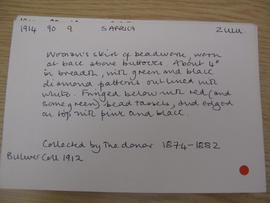 1914 90 9 S AFRICA ZULU
Woman's skirt of beadwork, worn
at back above buttocks. About 4"
in breadth, with green and black
diamond patterns outlined with
white. Fringed below with red (and
some green) bead tassels, and edged
on top with pink and black.
Collected by the donor 1874-1882
Bulwer Coll 1912